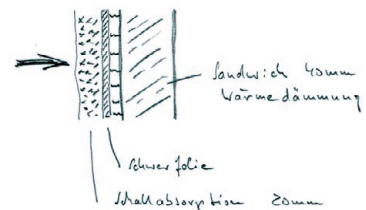 Sandwich 40mm
Wärmedämmung
Schwerfolie
Schallabsorption 20mm